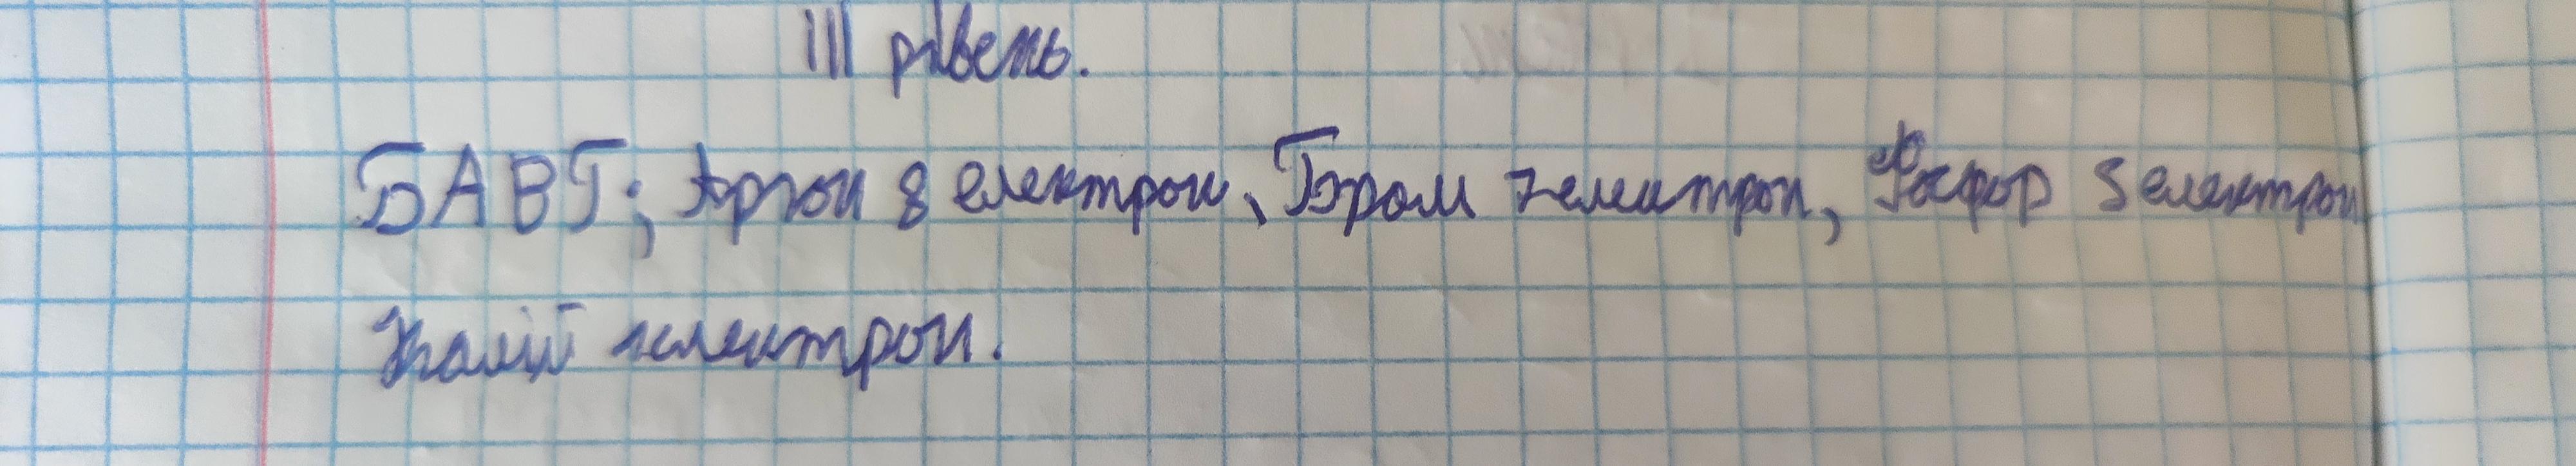 III рівень.
БАВГ; Аргон 8 електрон, Бром 7 електрон, Фосфор 5 електрон
Калій 1 електрон.